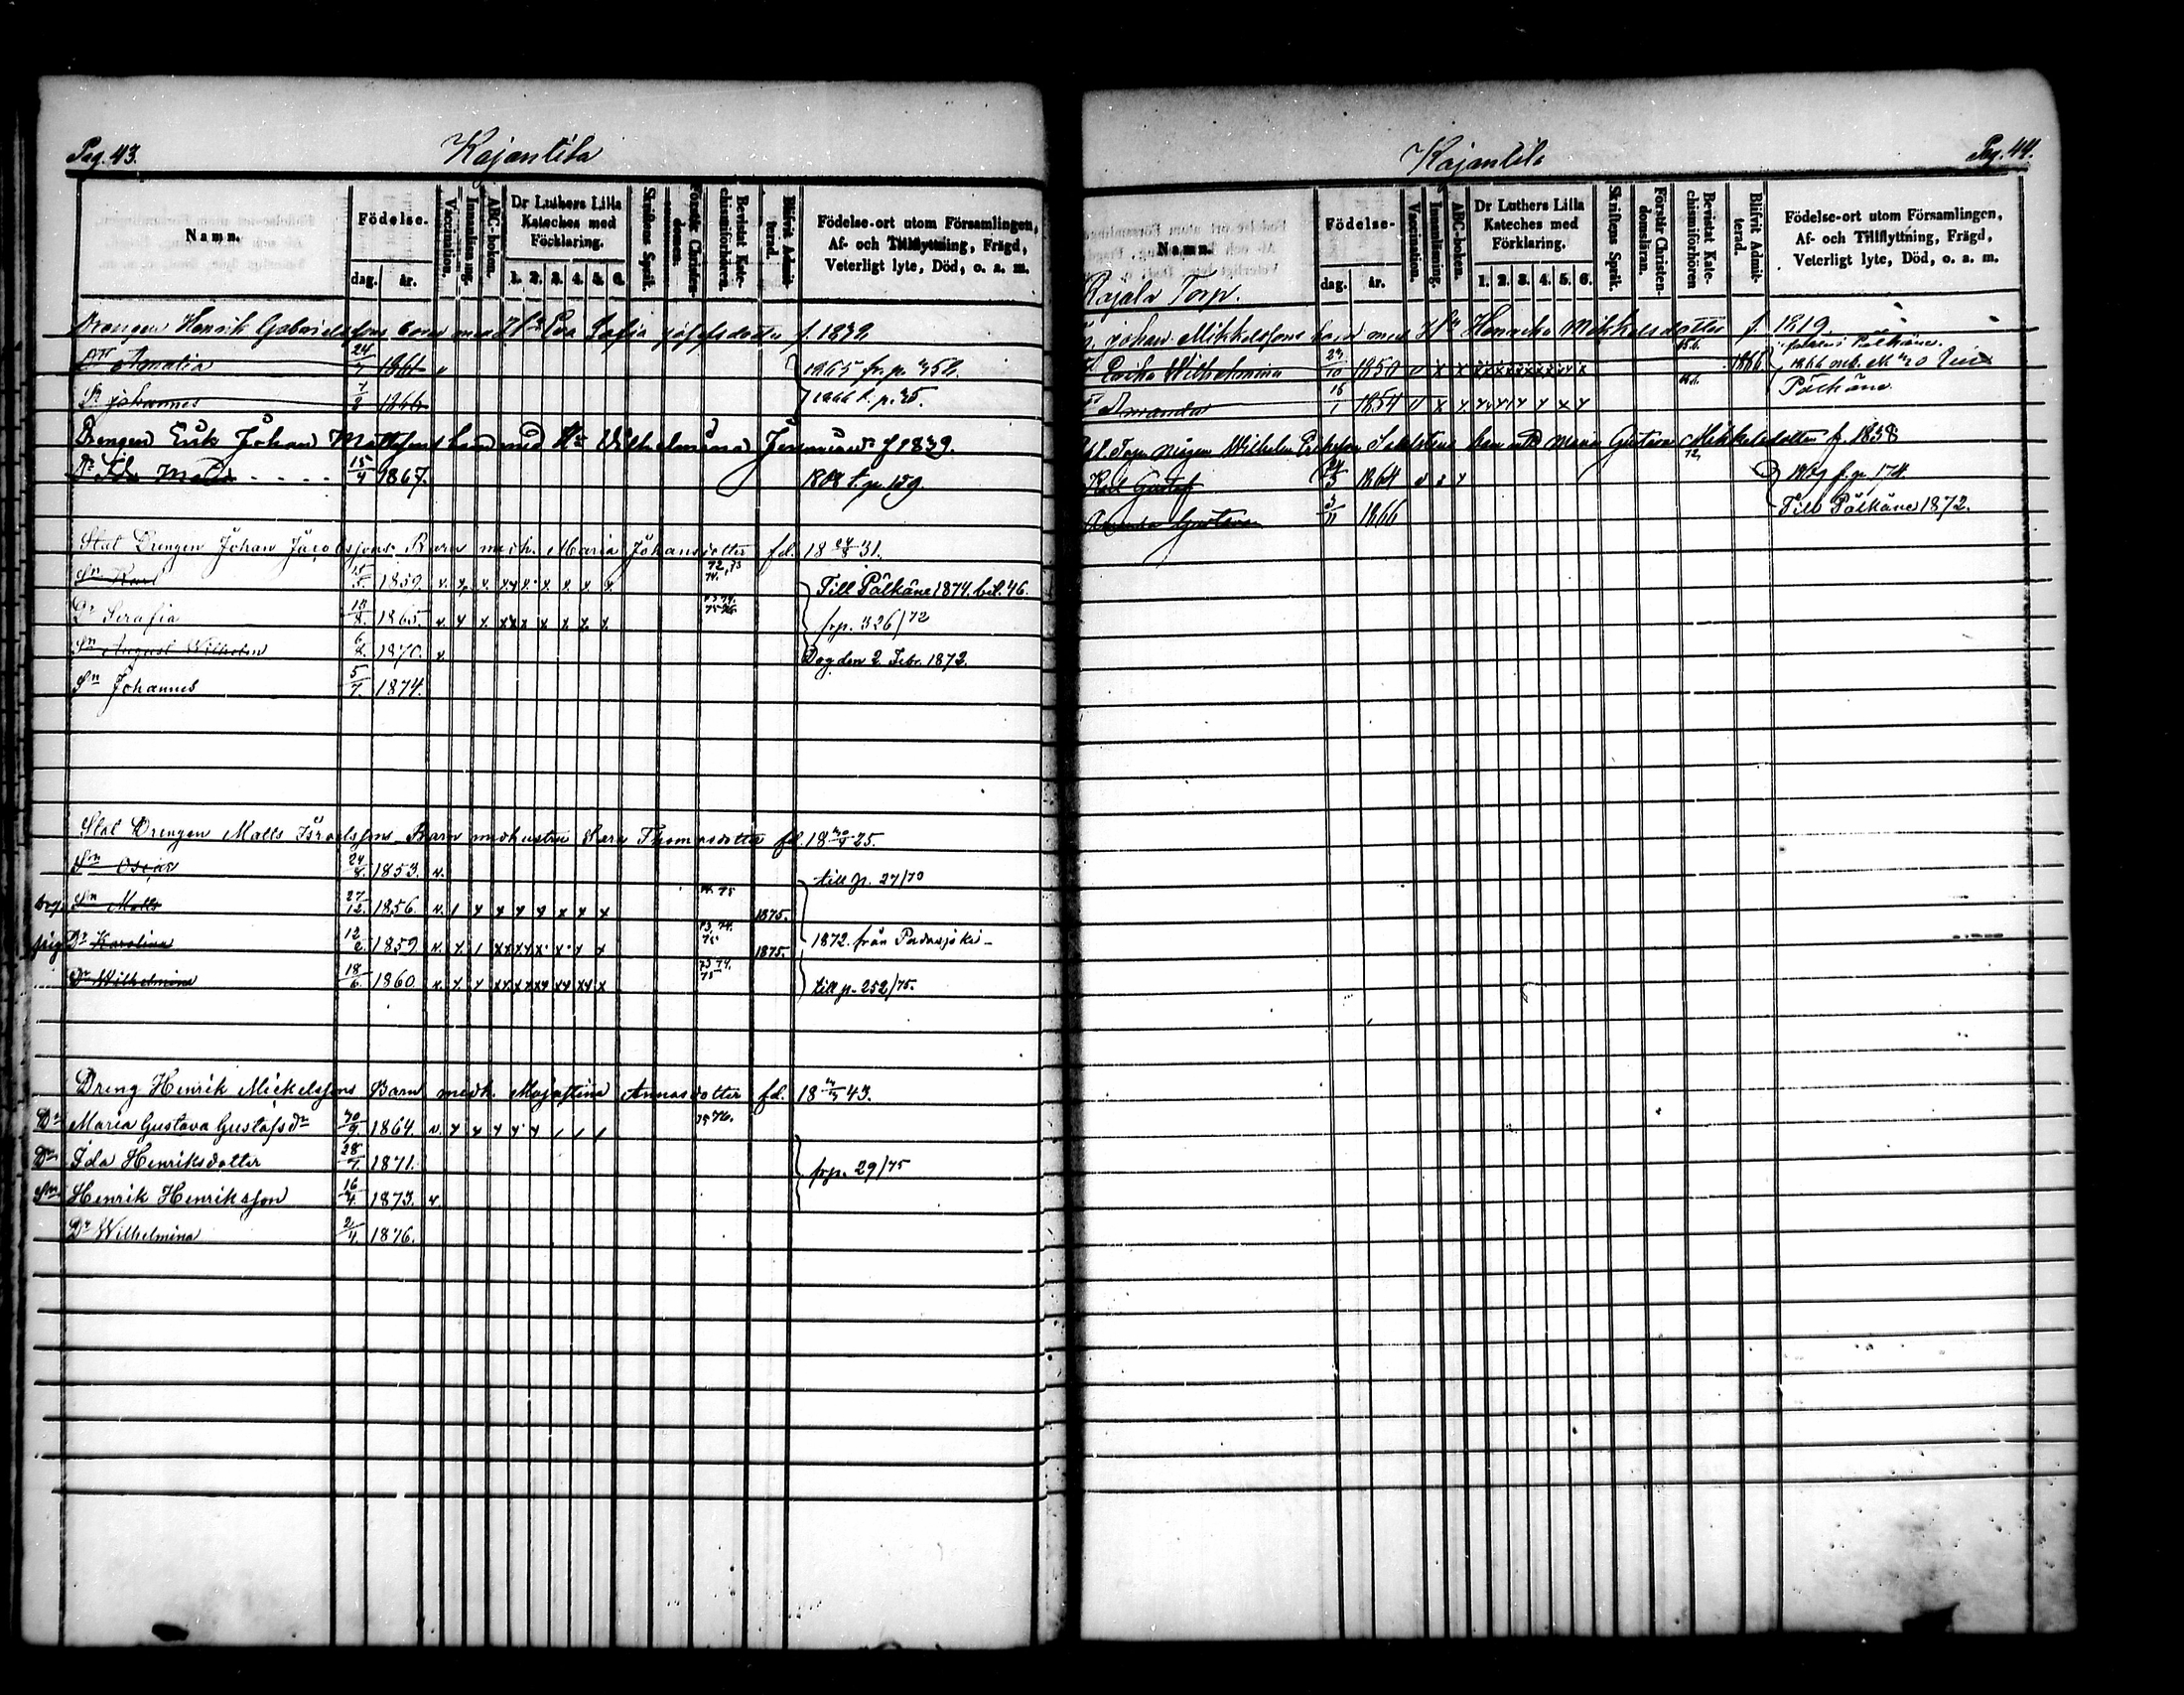 Pag. 43.
Kajantila
Namn.
Födelse-
dag.
år.
Vaccination.
Innanläsning.
ABC-boken.
Dr Luthers Lilla Kateches med Förklaring.
1. 2. 3. 4. 5. 6.
Skriftens Språk.
Förstår Christen-domen.
Bevistat Kate-chismiförhören
Blifvit Admit-terad.
Födelse-ort utom Församlingen, Af- och Tillflyttning, Frägd, Veterligt lyte, Död, o. a. m.
Drengen Henrik Gabrielssons barn med Eva Sofia f. 1832
Dr Amalia 24/7 1861 v 1865 fr. p. 352.
Sn Johannes 7/8 1866 1866 t. p. 35.
Drengen Erik Johan Mattssons barn med Hu Wilhelmina f 1839.
Dr Ida Maria 15/4 1867. t. p. 129.
Stat Drengen Johan Jacobssons Barn med h. Maria Johansdotter fd. 18 24/8 31.
Sn Karl 1859. v. x. v. x x x. x. x. x. x. 72, 73 74. Till Pälkäne 1874. bet. 46.
Dr Serafia 10/8. 1865. v. x x. x x x x x x. x. 73 74. 75 76. frp. 326/72
Sn August Wilhelm 1870. v. Dog den 2. Febr. 1872.
Sn Johannes 5/7. 1874.
Stat Drengen Matts Israelssons Barn med hustru Sara Thomasdotter fd. 18 25.
Sn Oscar 24/8. 1853. v. till p. 27/70
Sn Matts 27/12. 1856. v. 1 x x x x x x x 75 1875.
Dr Karolina 12/6. 1859. v. x 1 x x x x x x x x 73. 74. 75 1875. 1872. från Padasjoki
Dr Wilhelmina 18/6. 1860. v. x x x x x x x x x x x 73 74. 75 till p. 252/75.
Dreng Henrik Mickelssons Barn med h. Majastina Annasdotter fd. 18 43.
Dr Maria Gustava Gustafs dr 1864. v. x x x x x / / / 75 76.
Dr Ida Henriksdotter 28/7. 1871. frp. 29/75
Sn Henrik Henriksson 16/4. 1873. v.
Dr Wilhelmina 2/4. 1876.
Kajantila
Pag. 44.
Namn.
Födelse-
dag.
år.
Vaccination.
Innanläsning.
ABC-boken.
Dr Luthers Lilla Kateches med Förklaring.
1. 2. 3. 4. 5. 6.
Skriftens Språk.
Förstår Christen-domsläran.
Bevistat Kate-chismiförhören
Blifvit Admit-terad.
Födelse-ort utom Församlingen, Af- och Tillflyttning, Frägd, Veterligt lyte, Död, o. a. m.
Kajala Torp.
Johan Mikkelssons barn med Mikkelsdotter f. 1819
Wilhelmina 23/10 1850 v x x x x x x x x x x 1866 Pälkäne.
Dr Amanda 1854 v x x x x x x x x x Pälkäne
Wilhelm barn med Maria Gustava Mikkelsdotter f. 1838
Karl Gustaf 1864 f. p. 174.
Gustava 1866 Till Pälkäne 1872.